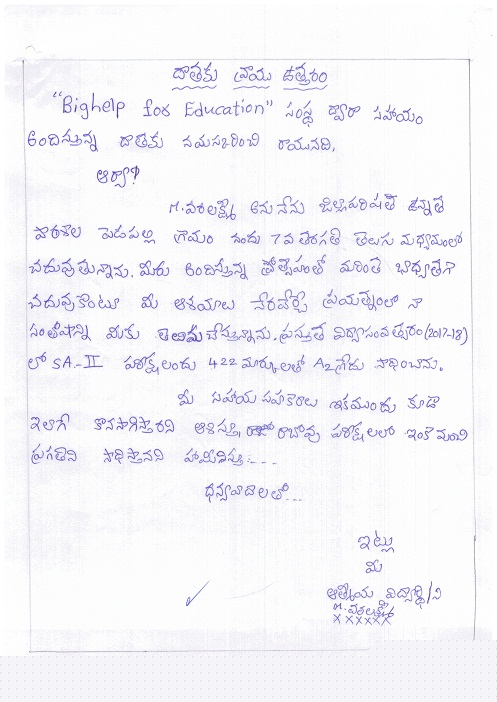 దాతకు వ్రాయు ఉత్తరం
"Bighelp for Education" సంస్థ ద్వారా సహాయం
అందిస్తున్న దాతకు నమస్కరించి రాయునది,
ఆర్యా!
M. వరలక్ష్మి అను నేను జిల్లాపరిషత్ ఉన్నత
పాఠశాల పెదపల్లి గ్రామం నందు 7వ తరగతి తెలుగు మధ్యమంలో
చదువుతున్నాను. మీరు అందిస్తున్న ప్రోత్సాహంతో మరింత బాధ్యతగా
చదువుకొంటూ మీ ఆశయాలు నేరవేర్చే ప్రయత్నంలో నా
సంతోషాన్ని మీకు తెలియచేస్తున్నాను. ప్రస్తుత విద్యాసంవత్సరం (2017-18)
లో SA-II పరీక్షలందు 422 మార్కులతో A2 గ్రేడు సాధించాను.
మీ సహాయ సహకారాలు ఇకముందు కూడా
ఇలాగే కొనసాగిస్తారని ఆశిస్తూ, రాబోవు పరీక్షలలో ఇంకా మంచి
ప్రగతిని సాధిస్తానని హామీనిస్తూ....
ధన్యవాదాలతో...
ఇట్లు
మీ
ఆత్మీయ విద్యార్థి/ని
M. వరలక్ష్మి
xxxxxx